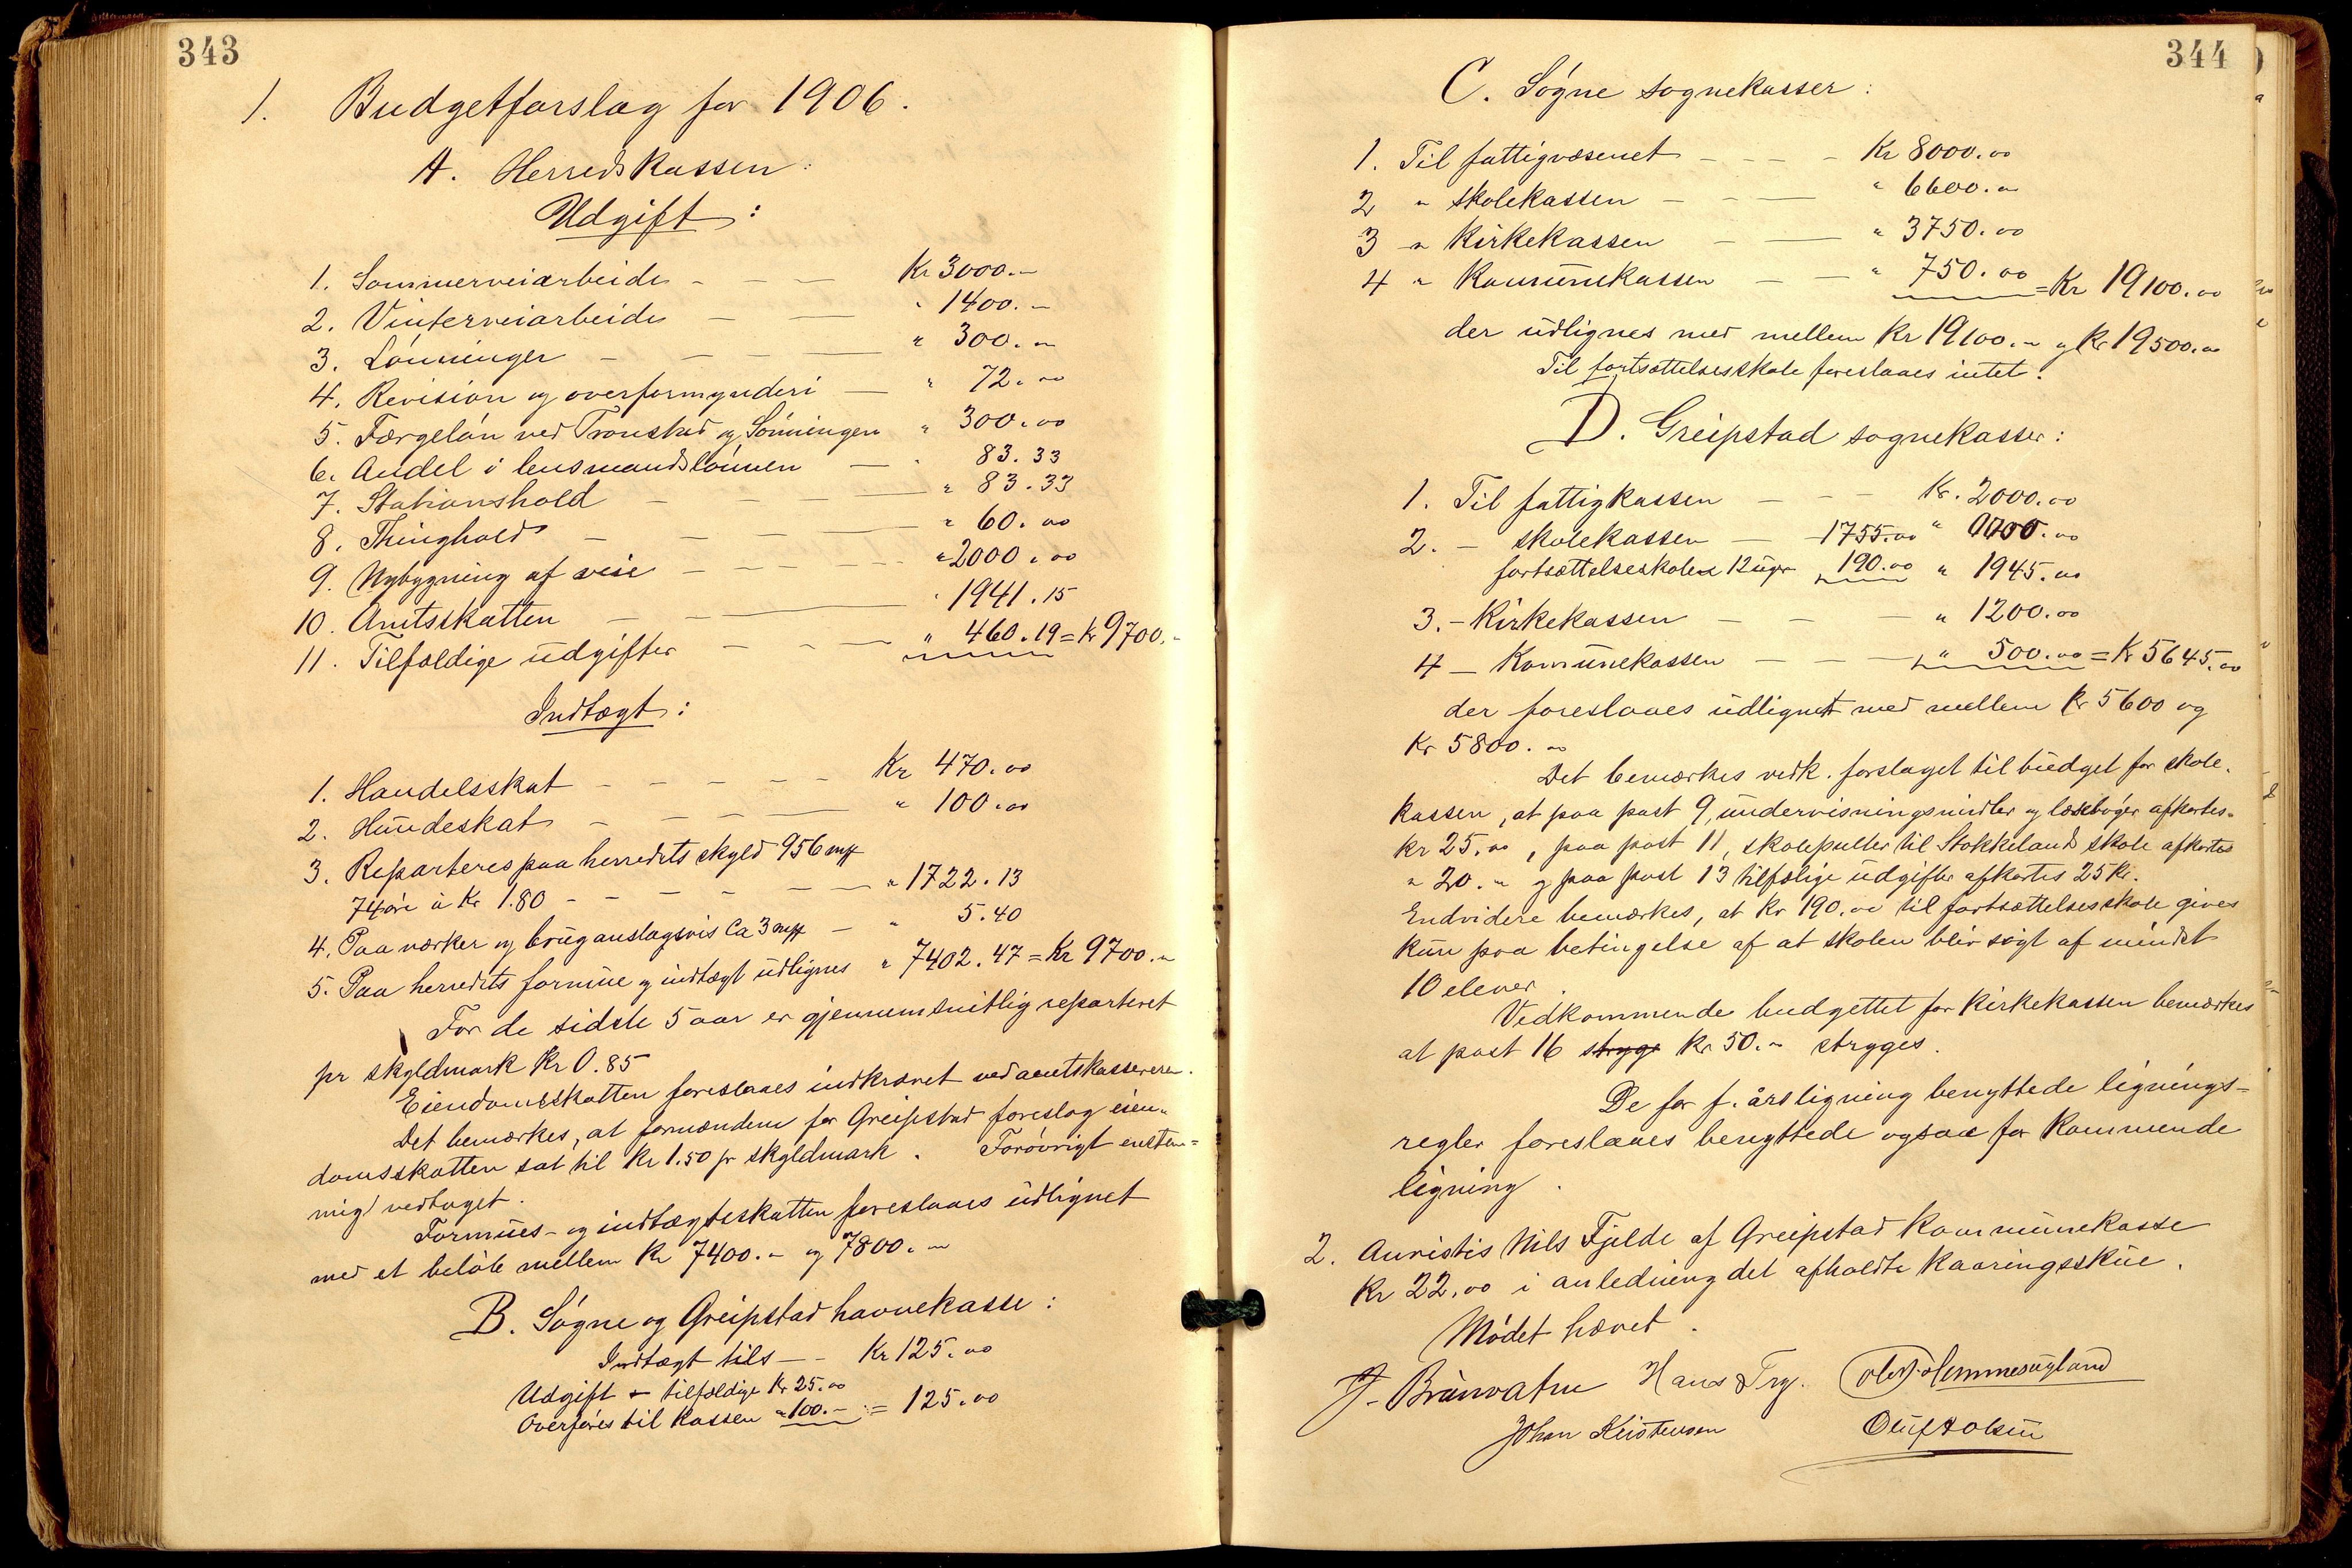 343
1. Budgetforslag for 1906.
A. Herredskassen:
Udgift:
1. Sommerveiarbeide - - - Kr 3000.-
2. Vinterveiarbeide - - " 1400.-
3. Lønninger - - - " 300.-
4. Revision og overformynderi - " 72.00
5. Færgeløn ved Tronstad og Lønningen " 300.00
6. Andel i lensmandslønnen - " 83.33
7. Stationshold - - - " 83.33
8. Thinghold - - - " 60.00
9. Nybygning af veie - - - " 2000.00
10. Amtsskatten - - - " 1941.15
11. Tilfældige udgifter - - - " 460.19 = Kr 9700.-
Indtægt:
1. Handelsskat - - - - - Kr 470.00
2. Hundeskat - - - - " 100.00
3. Reparteres paa herredets skyld 956 mk
74 øre à Kr 1.80 - - - - - " 1722.13
4. Paa værker og brug anslagsvis Ca 3 mk - " 5.40
5. Paa herredets formue og indtægt udlignes " 7402.47 = Kr 9700.-
For de sidste 5 aar er gjennemsnitlig reparteret
pr skyldmark Kr 0.85
Eiendomsskatten foreslaaes indkrævet ved amtskassereren.
Det bemærkes, at formændene for Greipstad foreslog eien-
domsskatten sat til Kr 1.50 pr skyldmark. Forøvrigt enstem-
mig vedtaget.
Formues- og indtægtsskatten foreslaaes udlignet
med et beløb mellem Kr 7400.- og 7800.-
B. Søgne og Greipstad havnekasse:
Indtægt tils - - Kr 125.00
Udgift - tilfældige Kr 25.00
Overføres til kassen " 100.- = 125.00
344
C. Søgne sognekasser:
1. Til fattigvæsenet - - - - Kr 8000.00
2 " skolekassen - - - " 6600.-
3 " Kirkekassen - - " 3750.00
4 " Kommunekassen - - " 750.00 = Kr 19100.00
der udlignes med mellem Kr 19100.- og Kr 19500.00
Til fortsættelsesskole foreslaaes intet.
D. Greipstad sognekasser:
1. Til fattigkassen - - - Kr. 2000.00
2. - skolekassen - 1755.00 "
fortsættelseskolen 12 uger 190.00 " 1945.00
3. - Kirkekassen - - - " 1200.00
4 - Kommunekassen - - - " 500.00 = Kr 5645.00
der foreslaaes udlignet med mellem Kr 5600 og
Kr 5800.00
Det bemærkes vedk. forslaget til budget for skole-
kassen, at paa post 9, undervisningsmidler og læsebøger afkortes
Kr 25.00, paa post 11, skolepulter til Stokkelands skole afkortes
" 20.- og paa post 13 tilfælige udgifter afkortes 25 Kr.
Endvidere bemærkes, at Kr 190.00 til fortsættelsesskole gives
kun paa betingelse af at skolen blir søgt af mindst
10 elever.
Vedkommende budgettet for Kirkekassen bemærkes
at post 16 stryge Kr 50.- stryges.
De for f. års ligning benyttede lignings-
regler foreslaaes benyttede ogsaa for kommende
ligning.
2. Anvistes Nils Fjelde af Greipstad Kommunekasse
Kr 22.00 i anledning det afholdte kaaringsskue.
Mødet hævet.
J. Brunvatne Hans Try.
Johan Kristensen Oluf A Olsen